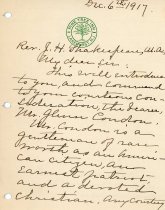 Dec. 6th 1917.
Rev. J. H. Shakespeare, M.A.,
My dear sir:-
This will introduce
to you, and commend
to your courteous con-
sideration, the bearer,
Mr. Glenn Condon.
Mr. Condon is a
gentleman of rare
worth as an Ameri-
can citizen, an
earnest patriot
and a devoted
Christian. Any courtesy